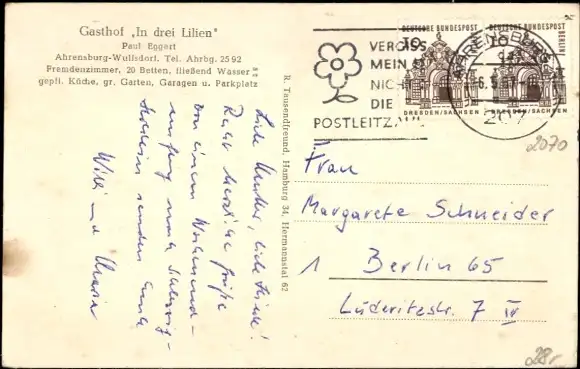 Gasthof „In drei Lilien"
Paul Eggert
Ahrensburg-Wulfsdorf. Tel. Ahrbg. 2592
Fremdenzimmer, 20 Betten, fließend Wasser
gepfl. Küche, gr. Garten, Garagen u. Parkplatz
Liebe Mutter, liebe
Recht herzliche Grüße
von einem Wochenend-
ausflug nach Schleswig-
Holstein senden Euch
Willi und
R. Tausendfreund, Hamburg 34, Hermannstal 62
VERGISS
MEIN
NICHT
DIE
POSTLEITZA
DEUTSCHE BUNDESPOST
10
DRESDEN/SACHSEN
DEUTSCHE BUNDESPOST
BERLIN
10
DRESDEN/SACHSEN
AHRENSBURG
207
2070
Frau
Margarete Schneider
1 Berlin 65
Lüderitzstr. 7 IV
28r